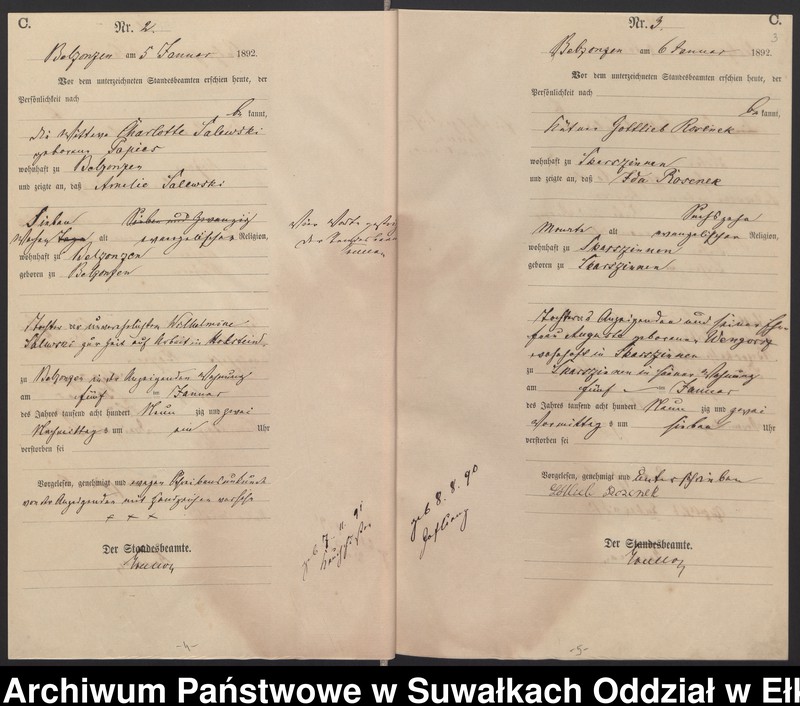 C.
Nr. 2.
Belzonzen am 5 Januar 1892.
Vor dem unterzeichneten Standesbeamten erschien heute, der
Persönlichkeit nach
be kannt,
die Wittwe Charlotte Salewski
geborene Papies
wohnhaft zu Belzonzen
und zeigte an, daß Amalie Salewski
Sieben Sieben und Zwanzig
Wochen Tage alt evangelischer Religion,
wohnhaft zu Belzonzen
geboren zu Belzonzen
Tochter der unverehelichten Wilhelmine
Salewski zur Zeit auf Arbeit in Holstein
zu Belzonzen in der Anzeigenden Wohnung
am fünf ten Januar
des Jahres tausend acht hundert Neun zig und zwei
Nachmittag s um ein Uhr
verstorben sei
Vorgelesen, genehmigt und wegen Schreibensunkunde
von der Anzeigenden mit Handzeichen versehen
+ + +
Der Standesbeamte.
Vier Worte
Der Standesbeamte
geb 11 91
-4-
Nr. 3.
C.
3
Belzonzen am 6 Januar 1892.
Vor dem unterzeichneten Standesbeamten erschien heute, der
Persönlichkeit nach
be kannt,
Käthner Gottlieb Rosenek
wohnhaft zu Skarszinnen
und zeigte an, daß Ida Rosenek
Sechszehn
Monate alt evangelischer Religion,
wohnhaft zu Skarszinnen
geboren zu Skarszinnen
Tochter des Anzeigenden und seiner Ehe
frau Auguste geborene
wohnhaft in Skarszinnen
zu Skarszinnen in seiner Wohnung
am fünf ten Januar
des Jahres tausend acht hundert Neun zig und zwei
Vormittag s um sieben Uhr
verstorben sei
Vorgelesen, genehmigt und unterschrieben
Gottlieb Rosenek
Der Standesbeamte.
geb 8. 8. 90
-5-
Archiwum Państwowe w Suwałkach Oddział w Ełk